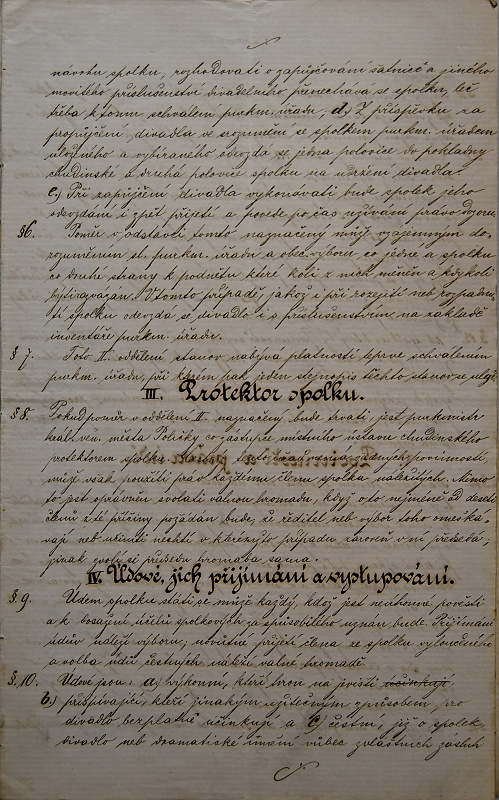 návrhu spolku, rozhodovati o zapůjčování šatnice a jiného
movitého příslušenství divadelního přenechává se spolku, leč
třeba k tomu schválení purkm. úřadu; d.) Z příspěvku za
propůjčení divadla ve srozumění se spolkem purkm. úřadem
uloženého a vybíraného odevzdá se jedna polovice do pokladny
chudinské a druhá polovice spolku na udržení divadla.
e.) Při zapůjčení divadla vykonávati bude spolek jeho
odevzdání i zpět přijetí a povede po čas užívání právo dozoru.
§6. Poměr v odstavci tomto naznačený může vzájemným do-
rozuměním sl. purkm. úřadu a obec. výboru co jedné a spolku
co druhé strany k podnětu které koli z nich měněn a kdykoli
býti vyvázán. V tomto případě, jakož i při rozejití neb rozpadnu-
tí spolku odevzdá se divadlo i s příslušenstvím na základě
inventáře purkm. úřadu.
§ 7. Toto II. oddělení stanov nabývá platnosti teprve schválením
purkm. úřadu, při kterém pak jeden stejnopis těchto stanov se uloží.
III. Protektor spolku.
§ 8. Pokud poměr v oddělení II. naznačený bude trvati, jest purkmistr
král. věn. města Poličky co zástupce místního ústavu chudinského
protektorem spolku. Kterýžto co takový nemá žádných povinností,
může však použíti práv každému členu spolku náležitých. Mimo
to jest oprávněn svolati valnou hromadu, když o to nejméně od deseti
členů z té příčiny požádán bude, že ředitel neb výbor toho omeškávají
vají neb učiniti nechtí v kterémžto případu zároveň v ní předsedá;
jinak zvolí si předsedu hromada sama.
IV. Údové, jich přijímání a vystupování.
§ 9. Údem spolku státi se může každý, kdož jest neúhonné pověsti
a k dosažení účelu spolkových za způsobilého uznán bude. Přijímání
údův náleží výboru, novětné přijetí člena ze spolku vyloučeného
a volba údů čestných náleží valné hromadě.
§. 10. Údové jsou: a.) výkonní, kteří hrou na jevišti účinkují,
b.) přispívající, kteří jinakým užitečným způsobem pro
divadlo bezplatně účinkují a c.) čestní, již o spolek,
divadlo neb dramatické umění vůbec zvláštních zásluh